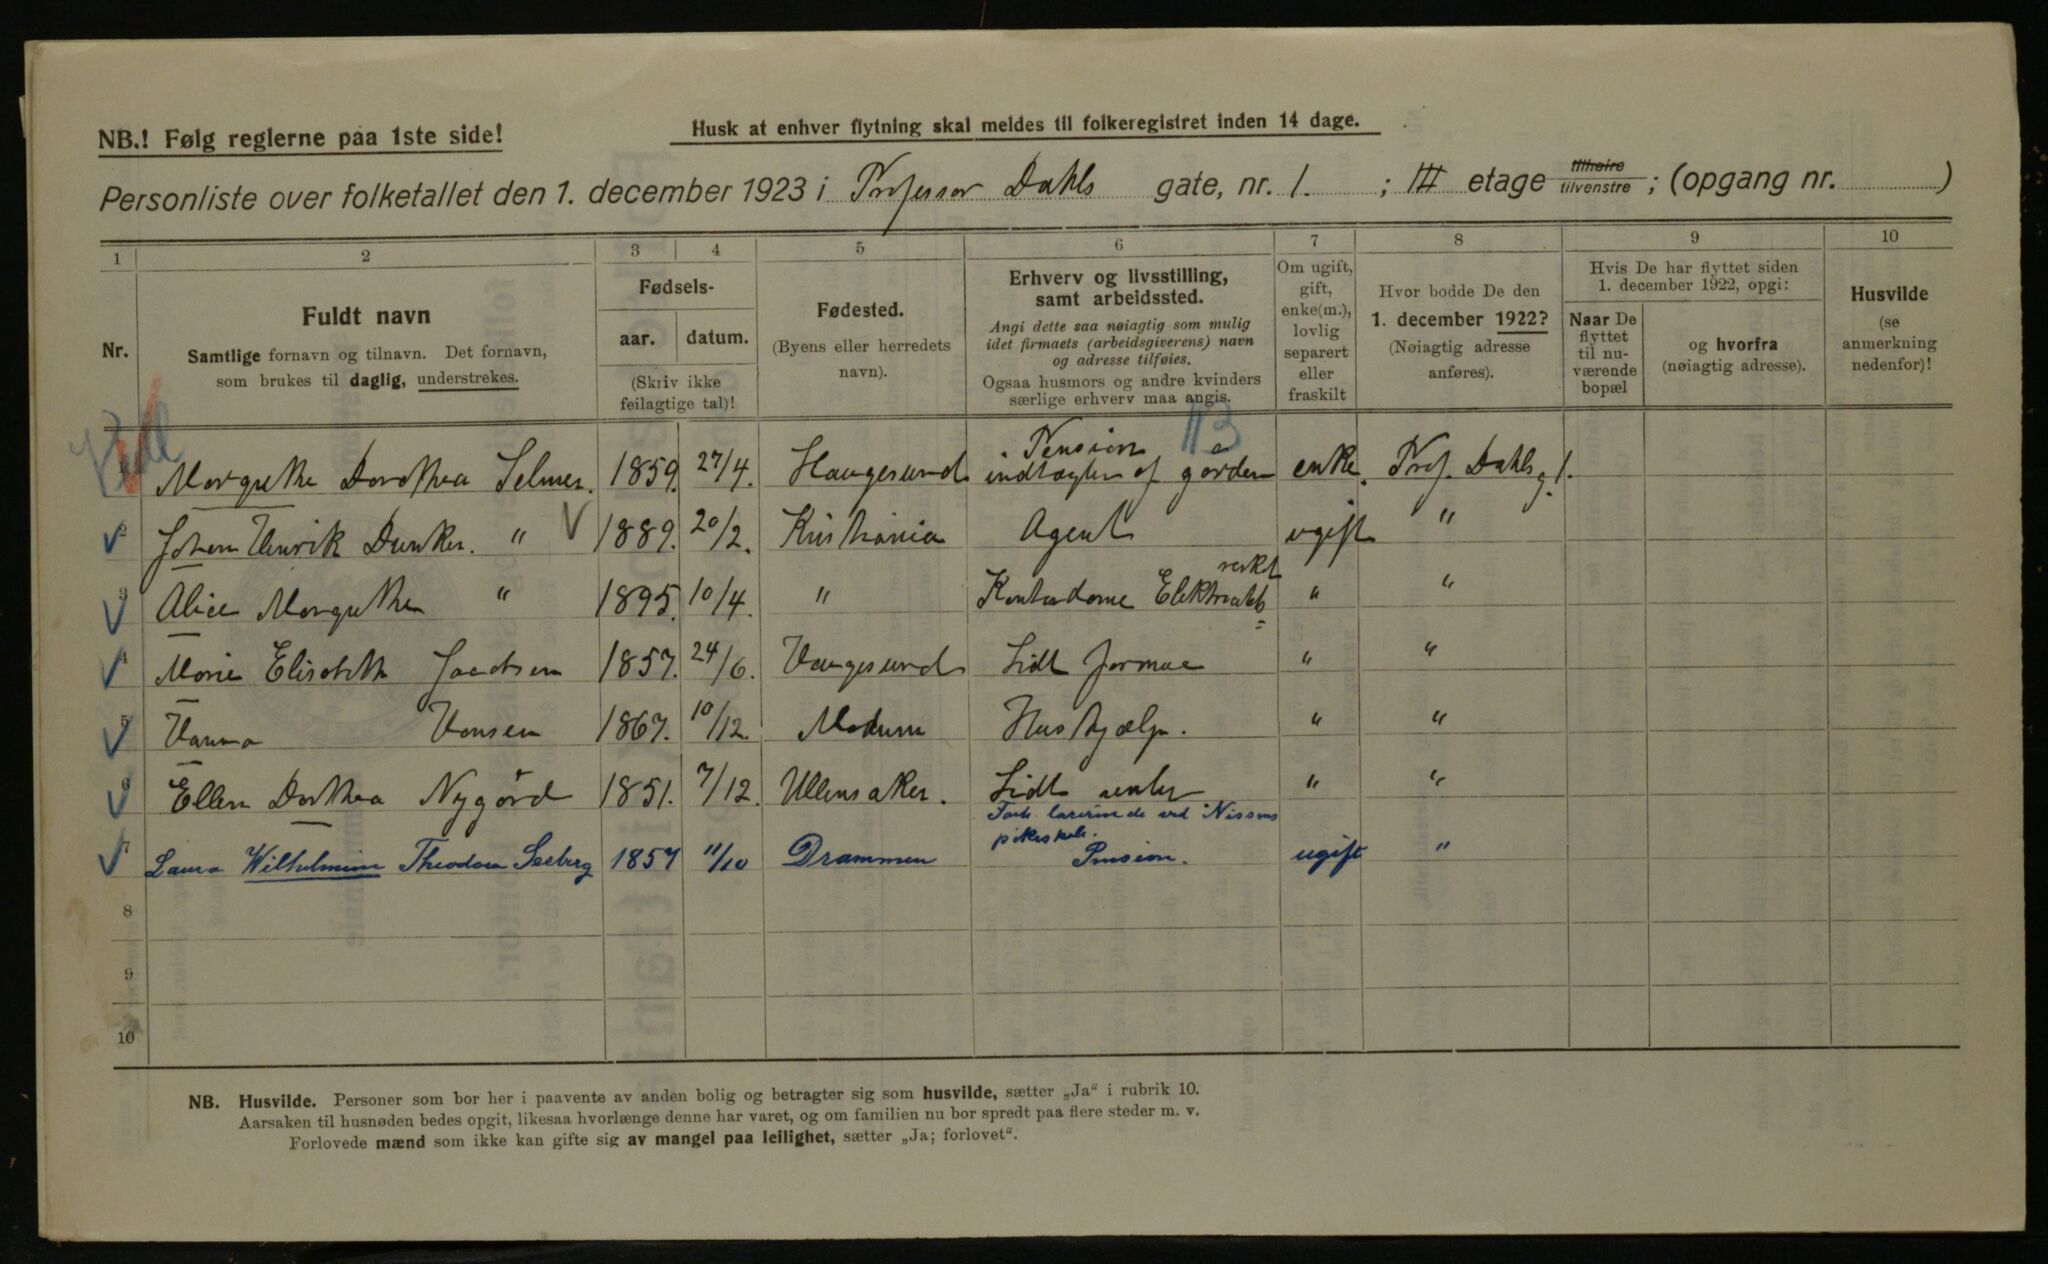 NB.! Følg reglerne paa 1ste side!
Husk at enhver flytning skal meldes til folkeregistret inden 14 dage.
Personliste over folketallet den 1. december 1923 i Professor Dahls gate, nr. 1. ; III etage tilhøire tilvenstre ; (opgang nr. )
1 2 3 4 5 6 7 8 9 10
Nr.
Fuldt navn
Samtlige fornavn og tilnavn. Det fornavn,
som brukes til daglig, understrekes.
Fødsels-
aar. datum.
(Skriv ikke
feilagtige tal)!
Fødested.
(Byens eller herredets
navn).
Erhverv og livsstilling,
samt arbeidssted.
Angi dette saa nøiagtig som mulig
idet firmaets (arbeidsgiverens) navn
og adresse tilføies.
Ogsaa husmors og andre kvinders
særlige erhverv maa angis.
Om ugift,
gift,
enke(m.),
lovlig
separert
eller
fraskilt
Hvor bodde De den
1. december 1922?
(Nøiagtig adresse
anføres).
Hvis De har flyttet siden
1. december 1922, opgi:
Naar De
flyttet
til nu-
værende
bopæl
og hvorfra
(nøiagtig adresse).
Husvilde
(se
anmerkning
nedenfor)!
Pension
1 Margrethe Dorothea Selmer. 1859. 27/4. Haugesund indtægter af gården enke. Prof. Dahls g. 1.
2 Johan Henrik Dunker. " 1889. 20/2. Kristiania Agent ugift "
3 Alice Margrethe " 1895. 10/4. " Kontordame " "
4 Marie Elisabeth 1857. 24/6. Haugesund Lidt formue " "
5 Hanna Hansen 1867. 10/12. Modum Hushjælp. " "
6 Ellen Dorthea Nygård 1851. 7/12. Ullensaker. Lidt renter " "
ved Nissens
pikeskole.
7 Laura Wilhelmine Theodora Seeberg 1857 11/10 Drammen Pension. ugift "
8
9
10
NB. Husvilde. Personer som bor her i paavente av anden bolig og betragter sig som husvilde, sætter „Ja“ i rubrik 10.
Aarsaken til husnøden bedes opgit, likesaa hvorlænge denne har varet, og om familien nu bor spredt paa flere steder m. v.
Forlovede mænd som ikke kan gifte sig av mangel paa leilighet, sætter „Ja; forlovet“.